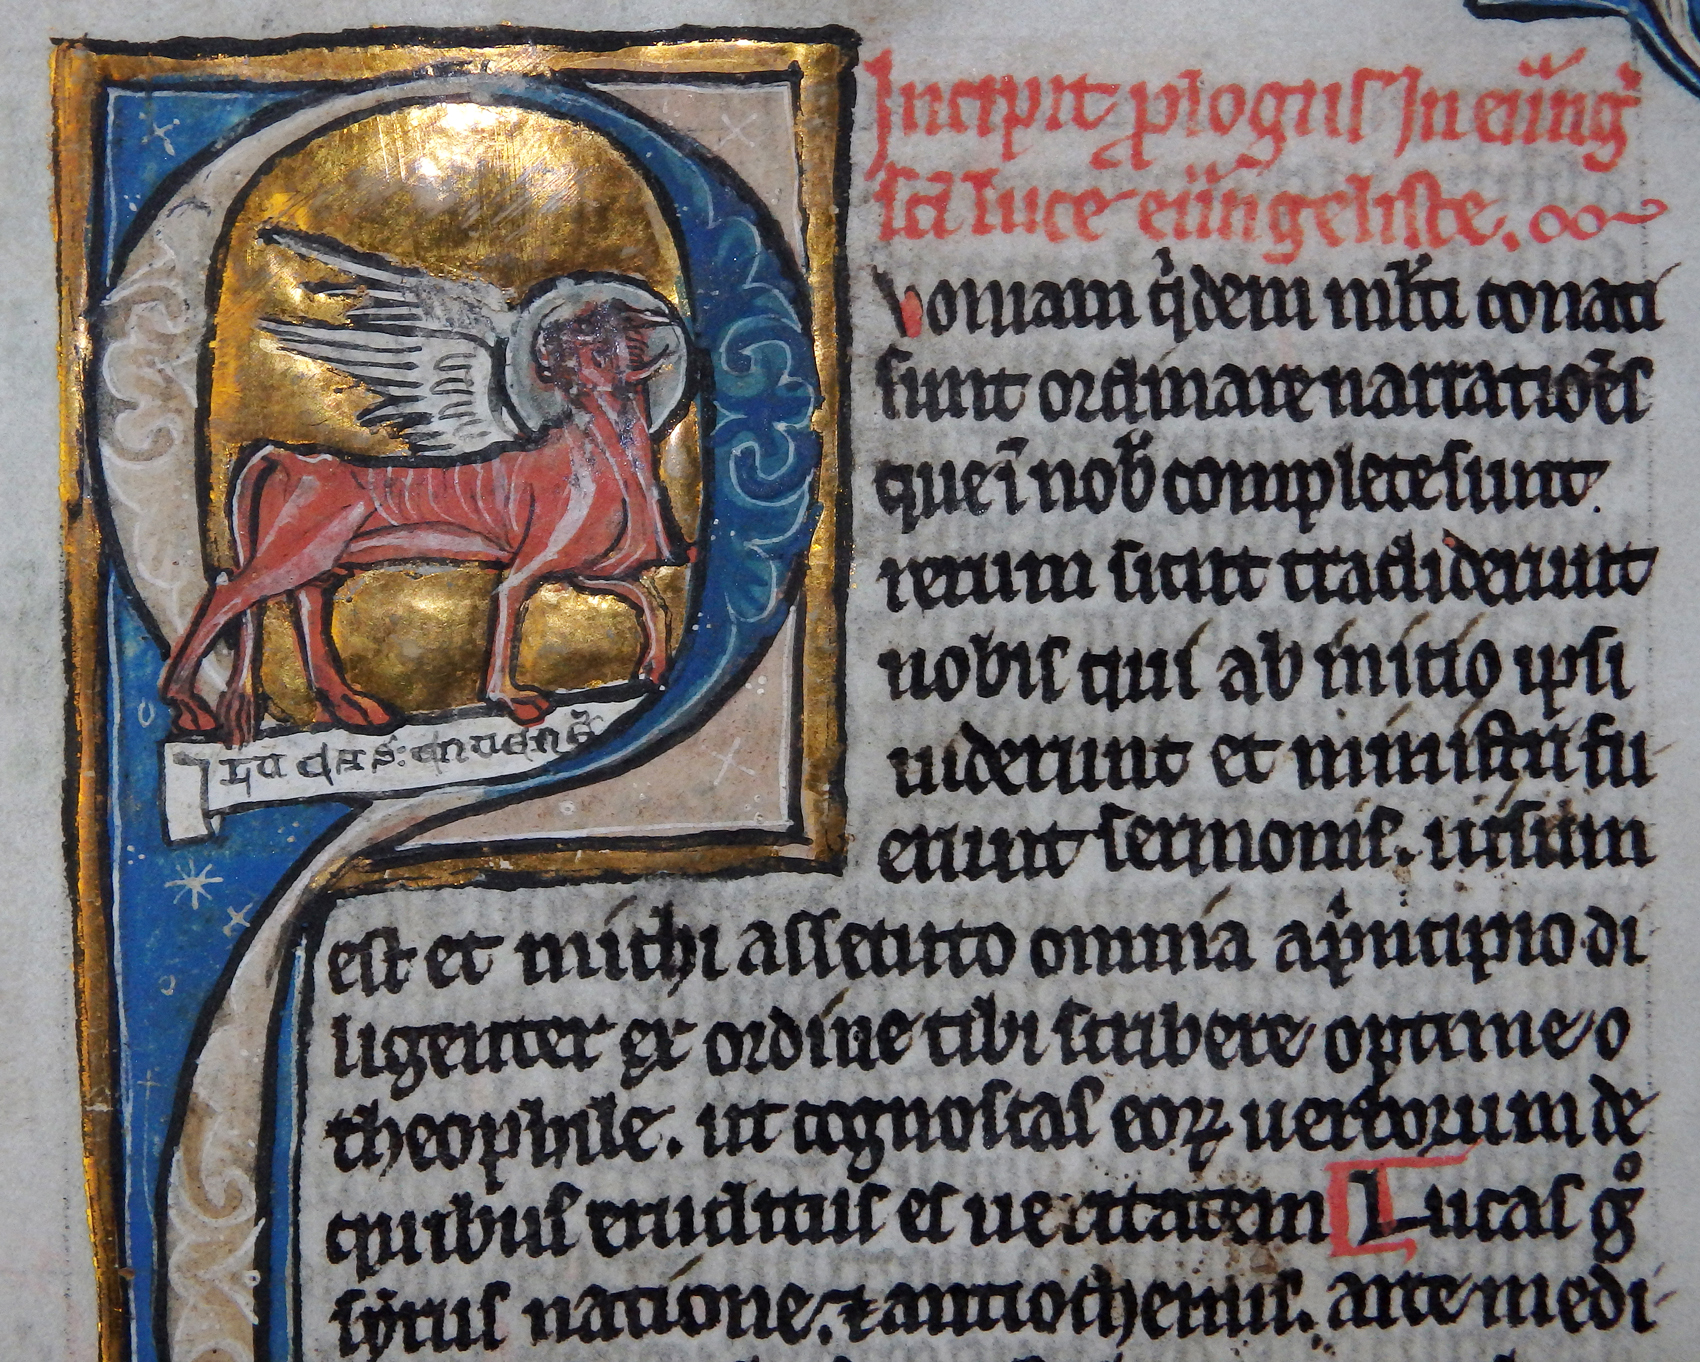 Incipit ꝓlogus In euu̅ng̅
sc̅i luce euu̅ngeliste.
LUCAS: 
Uoniam qͥdem ml̅ti conati
sunt ordinare narratio̅es
que i̅ nob̅ complete sunt
rerum sicut tradiderunt
nobis qui ab initio ipsi
uiderunt et ministri fu
erunt sermonis. uisum
est et michi assecuto omnia apͥncipio di
ligenter ex ordine tibi scribere optime o
theophile. ut cognoscas eoꝝ uerborum de
quibus eruditus es ueritatem Lucas gͦ
syrus natione. ⁊ antiochenus. arte medi